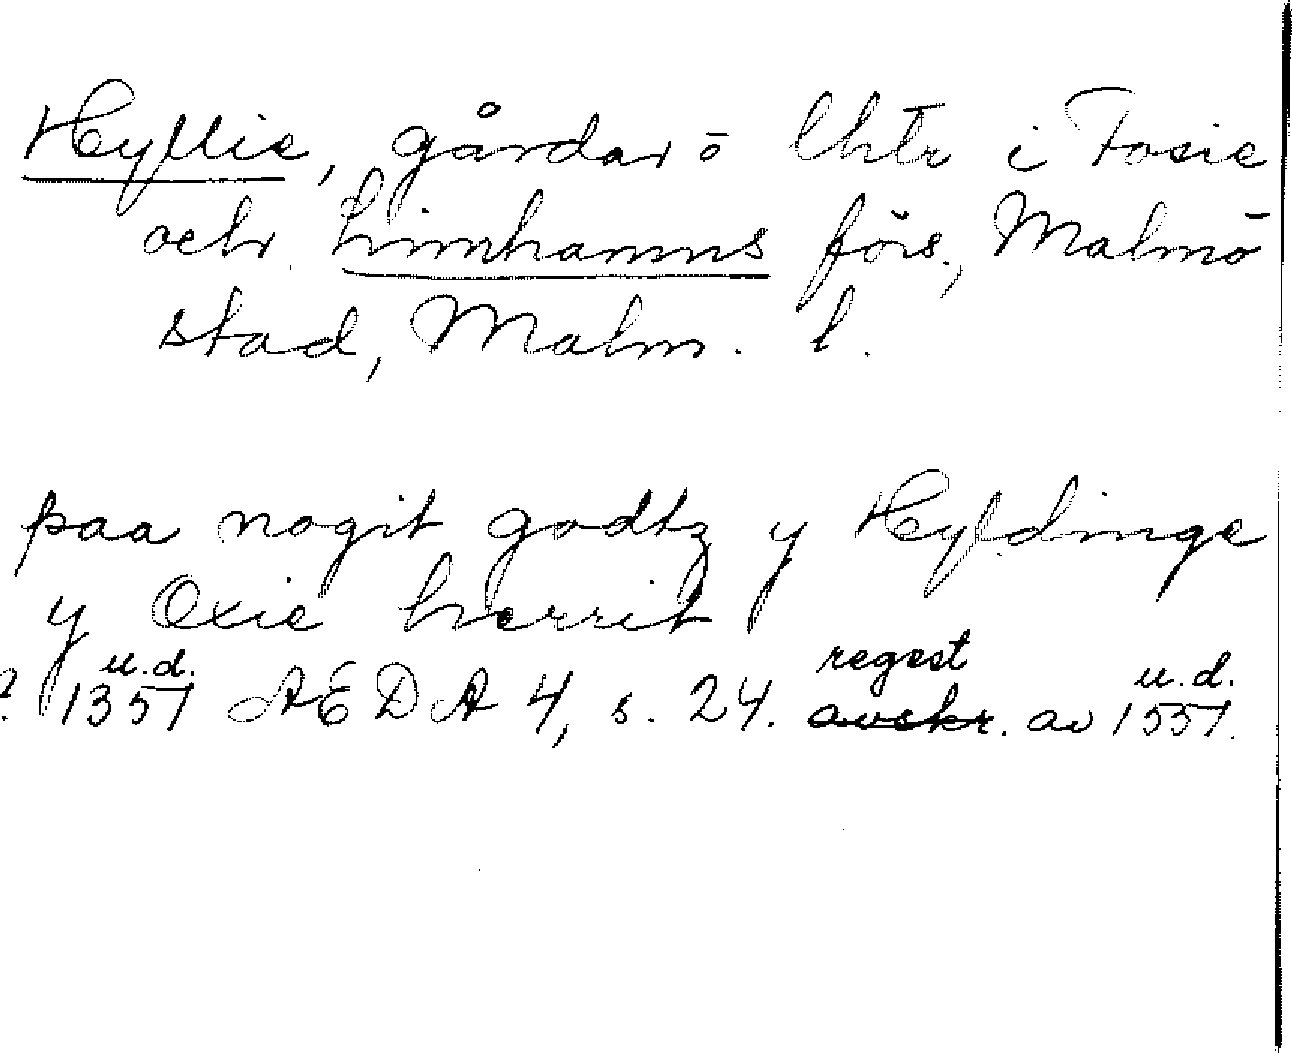 Hyllie, gårdar o lhtr i Fosie
och Limhamns förs., Malmö
stad, Malm. l.
paa nogit godtz y Hyldinge
y Oxie herrit
u.d. regest u.d.
? 1357 AEDA 4, s. 24. avskr. av 1557.